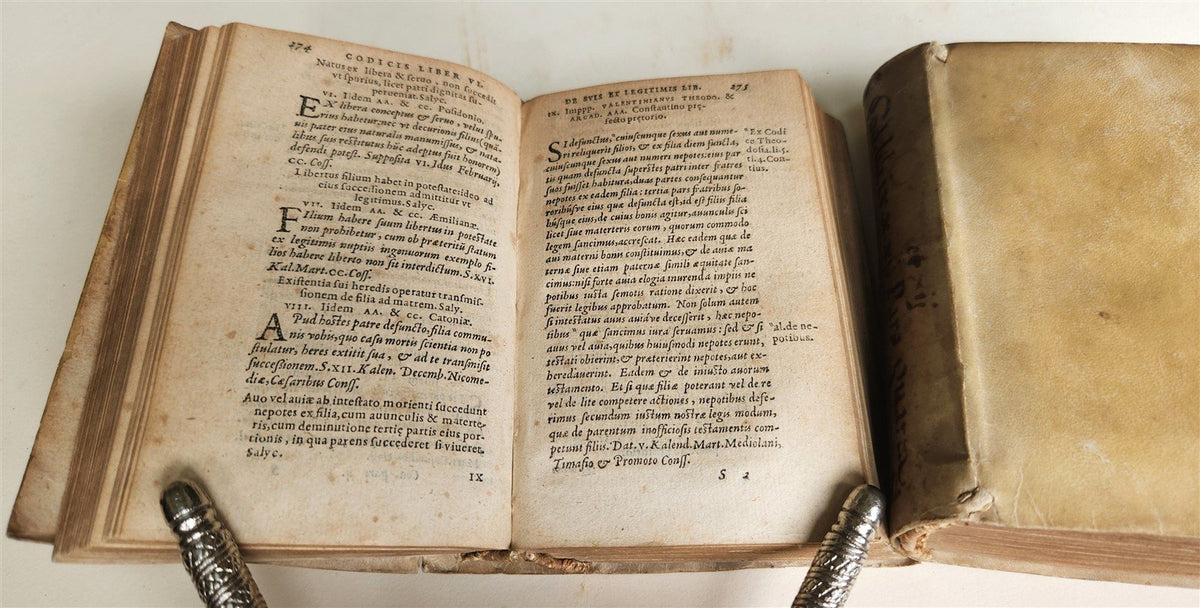 274
CODICIS LIBER VI.
Natus ex libera & seruo, non succedit
vt spurius, licet patri dignitas sit
perueniat. Salyc.
VI. Iidem AA. & CC. Posidonio.
EX libera conceptus & seruo, velut spu-
rius habetur, nec vt decurionis filius, quā-
uis pater eius naturalis manumissus, & nata-
libus suis restitutus hūc adeptus fuit honorem,
defendi potest. Supposita VI. Idus Februarij,
CC. Coss.
Libertus filium habet in potestate: ideo ad
eius successionem admittitur vt
legitimus. Salyc.
VII. Iidem AA. & CC. Æmilianæ.
FIlium habere suum libertus in potestate
non prohibetur, cum ob præteritū statum
ex legitimis nuptiis ingenuorum exemplo fi-
lios habere liberto non sit interdictum. S. XVI.
Kal. Mart. CC. Coss.
Existentia sui heredis operatur transmis-
sionem de filia ad matrem. Saly.
VIII. Iidem AA. & CC. Catoniæ.
APud hostes patre defuncto, filia commu-
nis vobis, quo casu mortis scientia non po
stulatur, heres extitit sua, & ad te transmisit
successionem. S. XII. Kalen. Decemb. Nicome-
diæ, Cæsaribus Conss.
Auo vel auiæ ab intestato morienti succedunt
nepotes ex filia, cum auunculis & materte-
ris, cum deminutione tertię partis eius por-
tionis, in qua parens succederet si viueret.
Salyc.
IX
DE SVIS ET LEGITIMIS LIB. 275
IX. Imppp. VALENTINIANVS THEODO. &
ARCAD. AAA. Constantino prę-
fecto prętorio.
SI defunctus, cuiuscunque sexus aut nume-
ri reliquerit filios, & ex filia diem functa,
cuiuscunque sexus aut numeri nepotes: eius par
tis quam defuncta superstes patri inter fratres
suos fuisset habitura, duas partes consequantur
nepotes ex eadem filia: tertia pars fratribus so-
roribúsve eius quæ defuncta est, id est filiis filia
búsque eius, de cuius bonis agitur, auunculis sci
licet siue materteris eorum, quorum commodo
legem sancimus, accrescat. Hæc eadem quæ de
aui materni bonis constituimus, & de auiæ ma
ternæ siue etiam paternæ simili æquitate san-
cimus: nisi forte auia elogia inurenda impiis ne
potibus iusta semotis ratione dixerit, & hoc
fuerit legibus approbatum. Non solum autem
si intestatus auus auiáve decesserit, hæc nepo-
tibus quæ sancimus iura seruamus: sed & si
auus vel auia, quibus huiusmodi nepotes erunt,
testati obierint, & præterierint nepotes, aut ex-
heredauerint. Eadem & de iniusto auorum
testamento. Et si quæ filiæ poterant vel de re
vel de lite competere actiones, nepotibus defe-
rimus secundum iustum nostræ legis modum,
quæ de parentum inofficiosis testamentis com-
petunt filiis. Dat. v. Kalend. Mart. Mediolani,
Timasio & Promoto Conss.
S 2
Ex Codi
ce Theo-
dosia. li. 5.
ti. 4. Con-
tius.
al. de ne-
potibus.